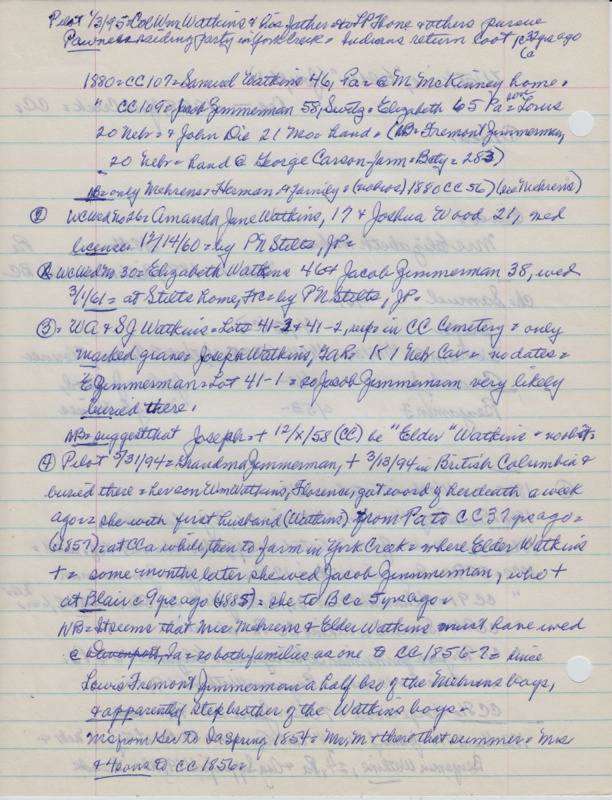 Pilot 1/3/95 = Col Wm Watkins & his father & others pursue
Pawnee raiding party in York Creek = Indians return loot yrs ago
1880 = CC 107 = Samuel Watkins 46, Pa = @ M. McKinney home =
" CC 109 = Jacob Zimmerman 58, Switz = Elizabeth 65 Pa = Louis
20 Nebr = & John Die 21 Mo = hand = (NB = Fremont Zimmerman,
20 Nebr = hand @ George Carson farm = Bcty = 283)
NB = only Mehrens = Herman & family = (no bros) 1880 CC 56) (see Mehrens)
② WCWed No 26 = Amanda Jane Watkins, 17 & Joshua Wood 21, wed
license 12/14/60 = by P N Stilts, JP =
& WCWed No 30 = Elizabeth Watkins 46 & Jacob Zimmerman 38, wed
3/1/61 = at Stilts home, = by P N Stilts, JP.
③ = WA & SJ Watkins = Lots 41-2 & 41-2, in CC Cemetery = only
marked grave = Joseph Watkins, GAR = K 1 Neb Cav = no dates =
E Zimmerman = Lot 41-1 = so Jacob Zimmerman very likely
buried there.
NB = suggest that Joseph = + 12/x/58 (CC) be "Elder" Watkins = no obit =
④ Pilot 5/31/94 = Grandma Zimmerman, + 3/13/94 in British Columbia &
buried there = her son Wm Watkins, Florence, got word of her death a week
ago = she with first husband (Watkins) from Pa to CC 37 yrs ago =
(1857) = at CC a while, then to farm in York Creek = where Elder Watkins
+ = some months later she wed Jacob Zimmerman, who +
at Blair c 9 yrs ago (1885) = she to BC c 5 yrs ago =
NB = It seems that Mrs Mehrens & Elder Watkins must have wed
@ Davenport, Ia = so both families as one to CC 1856-7 = since
Louis Fremont Zimmerman a half bro of the Mehrens boys,
& apparently stepbrother of the Watkins boys =
Mrs from Ger to Ia Spring 1854 = Mr. M + there that summer = Mrs
& 4 sons to CC 1856 =